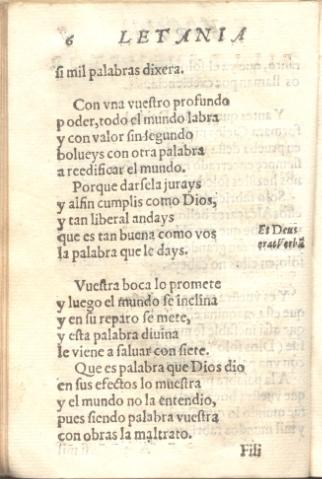 6 LETANIA
si mil palabras dixera.
Con vna vuestro profundo
poder, todo el mundo labra
y con valor sin segundo
bolueys con otra palabra
a reedificar el mundo.
Porque darsela jurays
y alfin cumplis como Dios,
y tan liberal andays
que es tan buena como vos
la palabra que le days.
Et Deus
erat Verbũ
Vuestra boca lo promete
y luego el mundo se inclina
y en su reparo se mete,
y esta palabra diuina
le viene a saluar con siete.
Que es palabra que Dios dio
en sus efectos lo muestra
y el mundo no la entendio,
pues siendo palabra vuestra
con obras la maltrato.
Fili